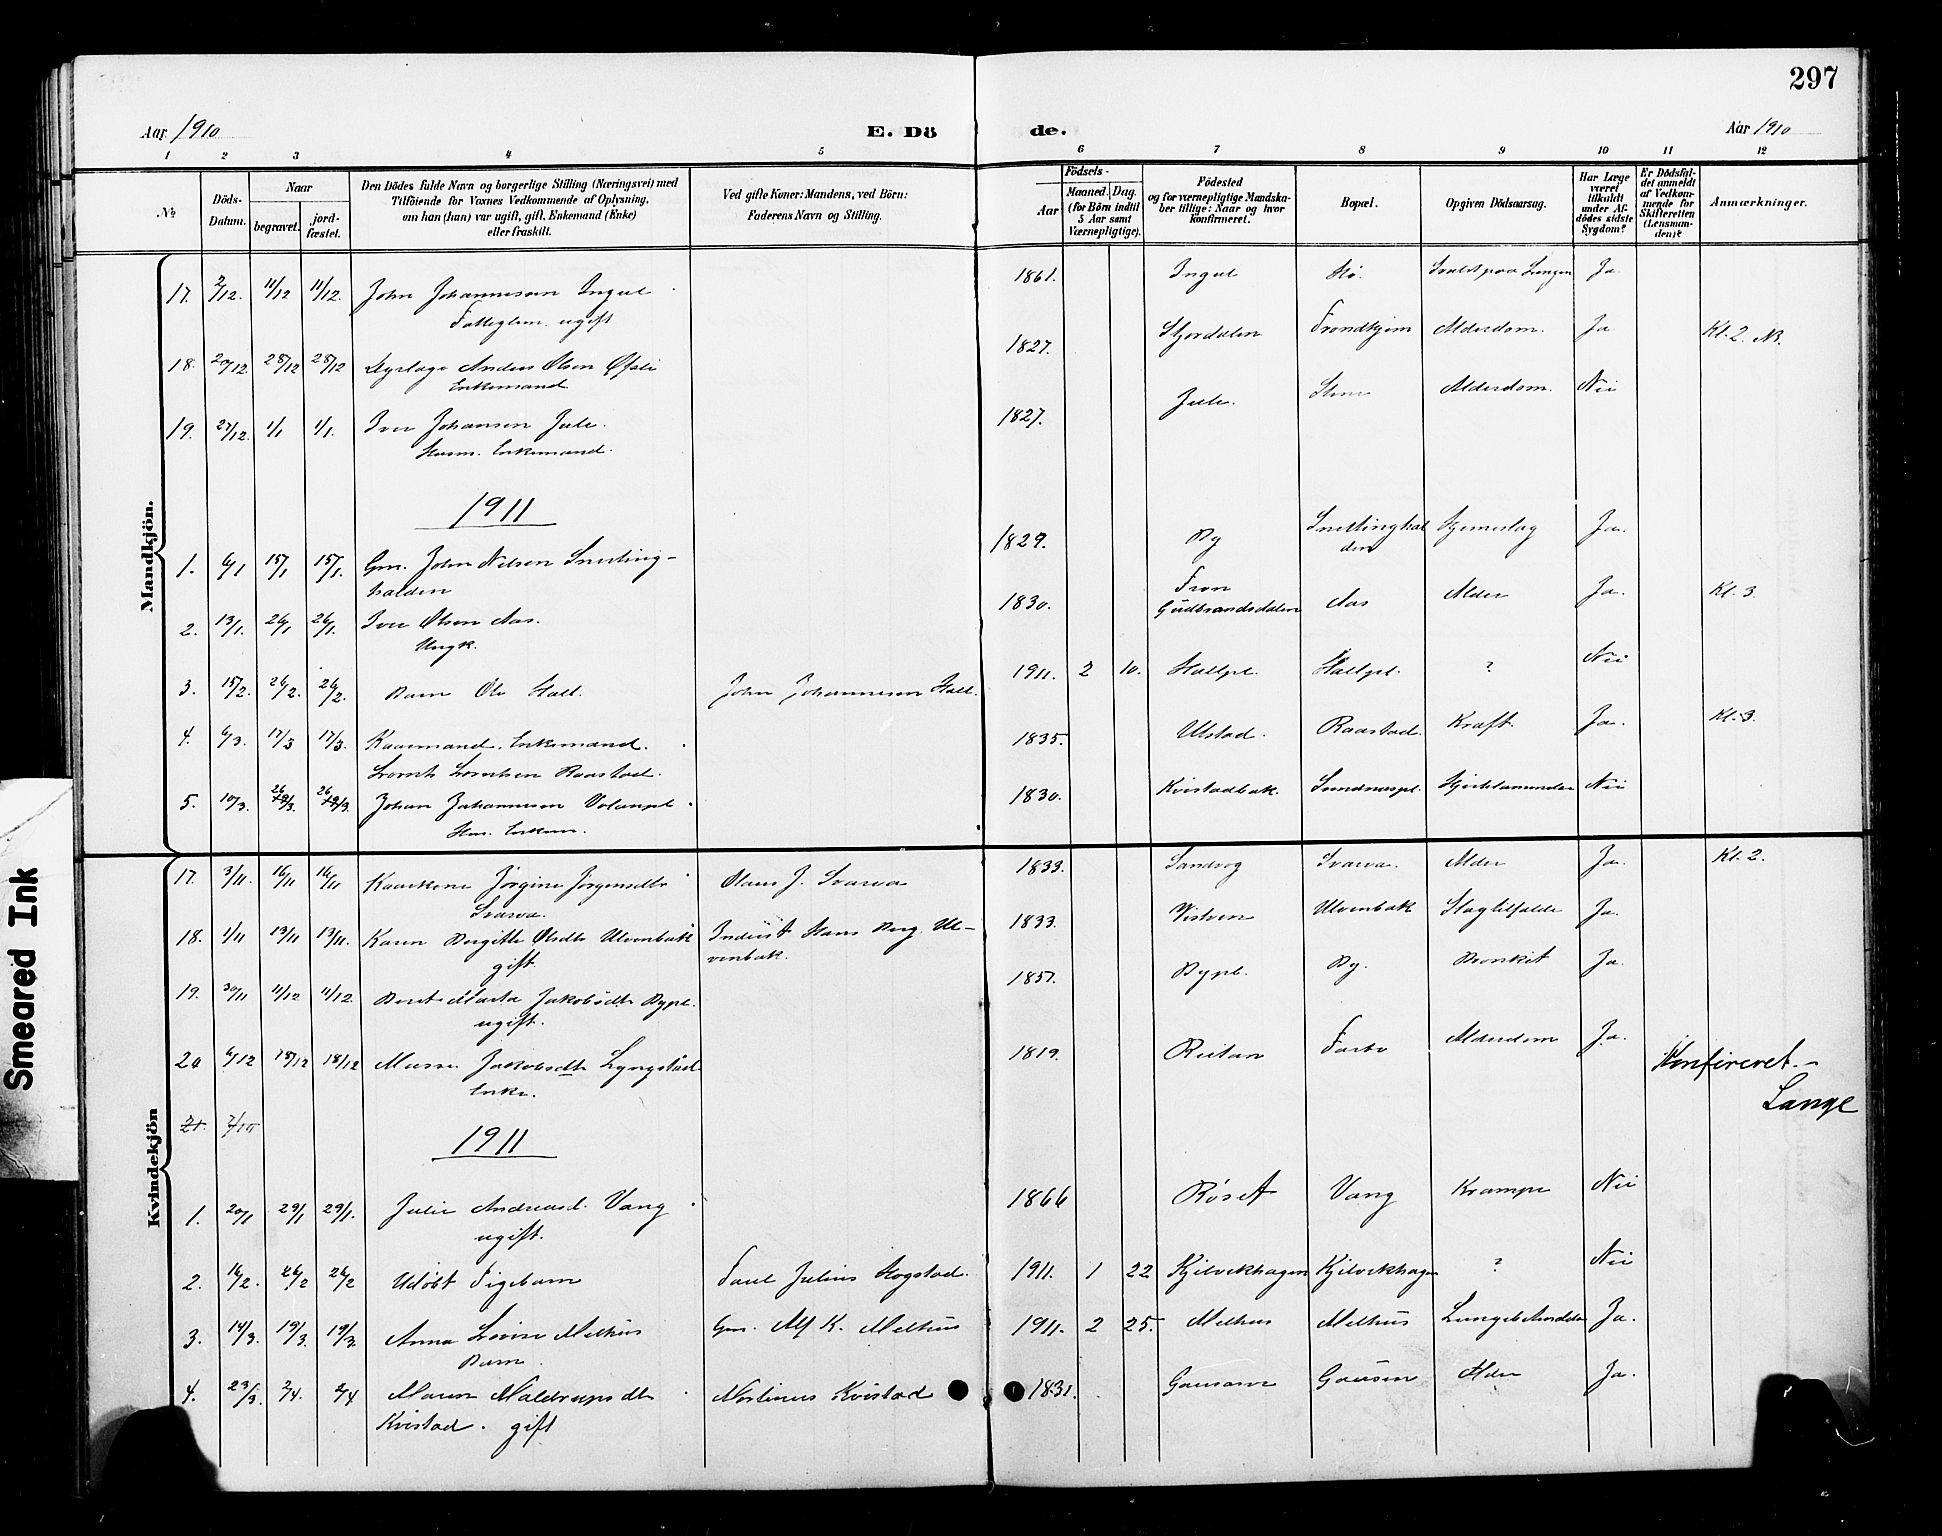 297
Aar 1910
E. Dö
de.
Aar 1910
1 2 3 4 5 6 7 8 9 10 11 12
No
Döds-Datum.
Naar
begravet.
jord-fæstet.
Den Dödes fulde Navn og borgerlige Stilling (Næringsvei) med
Tilföiende for Voxnes Vedkommende af Oplysning,
om han (hun) var ugift, gift, Enkemand (Enke)
eller fraskilt.
Ved gifte Koner: Mandens, ved Börn:
Faderens Navn og Stilling.
Födsels-
Aar
Maaned. Dag.
(for Börn indtil
5 Aar samt
Værnepligtige).
Födested
og for værnepligtige Mandska-
ber tillige: Naar og hvor
konfirmeret.
Bopæl.
Opgiven Dödsaarsag.
Har Læge
været
tilkaldt
under Af-
dödes sidste
Sygdom?
Er Dödsfal-
det anmeldt
af Vedkom-
mende for
Skifteretten
(Lensman-
den)?
Anmærkninger.
Mandkjön.
17. 2/12. 11/12 11/12. John Johannesen Ingul 1861. Ingul Ja.
ugift
18. 20/12. 28/12 28/12 Dyrlæge Anders Olsen Øfsti 1827. Stjordalen Trondhjem Alderdom. Ja Kl. 2.
Enkemand
19. 27/12. 1/1 1/1. Iver Johansen Jule. 1827. Jule. Alderdom. Nei
Husm. Enkemand.
1911
1. 6/1 15/1 15/1. Gm. John Nilsen Snelting- 1829. By Hjerneslag Ja.
halden
2. 13/1. 26/1 26/1. Iver Olsen Aas. 1830. Fron Gudbrandsdalen Aas Alder Ja. Kl. 3.
Ungk.
3. 15/2. 26/2. 26/2. Barn Ole Hall. John Johannesen Hall. 1911. 2 10. Hallpl. Hallpl. ? Nei
4. 6/3. 17/3 17/3. Kaarmand. Enkemand. 1835. Ulstad. Raastad. Kræft. Ja. Kl. 3.
Lorents Lorentsen Raastad.
5. 10/3. 26/3. 26/3. Johan Johannesen 1830. Kvistadbak. Sundnæspl. Nei
Hm. Enkem.
Kvindekjön
17. 3/11. 16/11 16/11 Kaarkone Jørgine Jørgensdtr Olaus J. Svarva 1833. Sandvog Svarva. Alder Ja. Kl. 2.
Svarva.
18. 1/11 13/11 13/11. Karen Birgitte Olsdtr Ulvenbak Inderst Hans Berg. Ul- 1833. Vistven Ulvenbak Slagtilfælde Ja.
gift. venbak.
19. 30/11 11/12 11/12. Beret Marta Jakobsdtr Bypl. 1851. Bypl. By. Bronkit Ja.
ugift.
20 6/12 18/12 18/12 Jakobsdtr Lyngstad 1819. Reitan Alderdom Ja.
Enke.
21.
Konfereret. -
Lange
1911
1. 20/1 29/1 29/1. Julie Andreasd. Vang 1866 Røset Vang Krampe Nei
ugift.
2. 16/2. 26/2 26/2 Udøbt Pigebarn Paul Julius Hogstad. 1911. 1 22 Kjelvikhagen Kjelvikhagen ? Nei
3. 14/3. 19/3. 19/3. Anna Lovise Melhus Gm. Alf K. Melhus 1911. 2 25. Melhus Melhus Lungebetændelse Ja.
Barn
4. 23/3. 2/4. 2/4 Maren Maldrupsdtr Martinus Kvistad 1831. Alder Ja.
Kvistad. gift
Smeared Ink